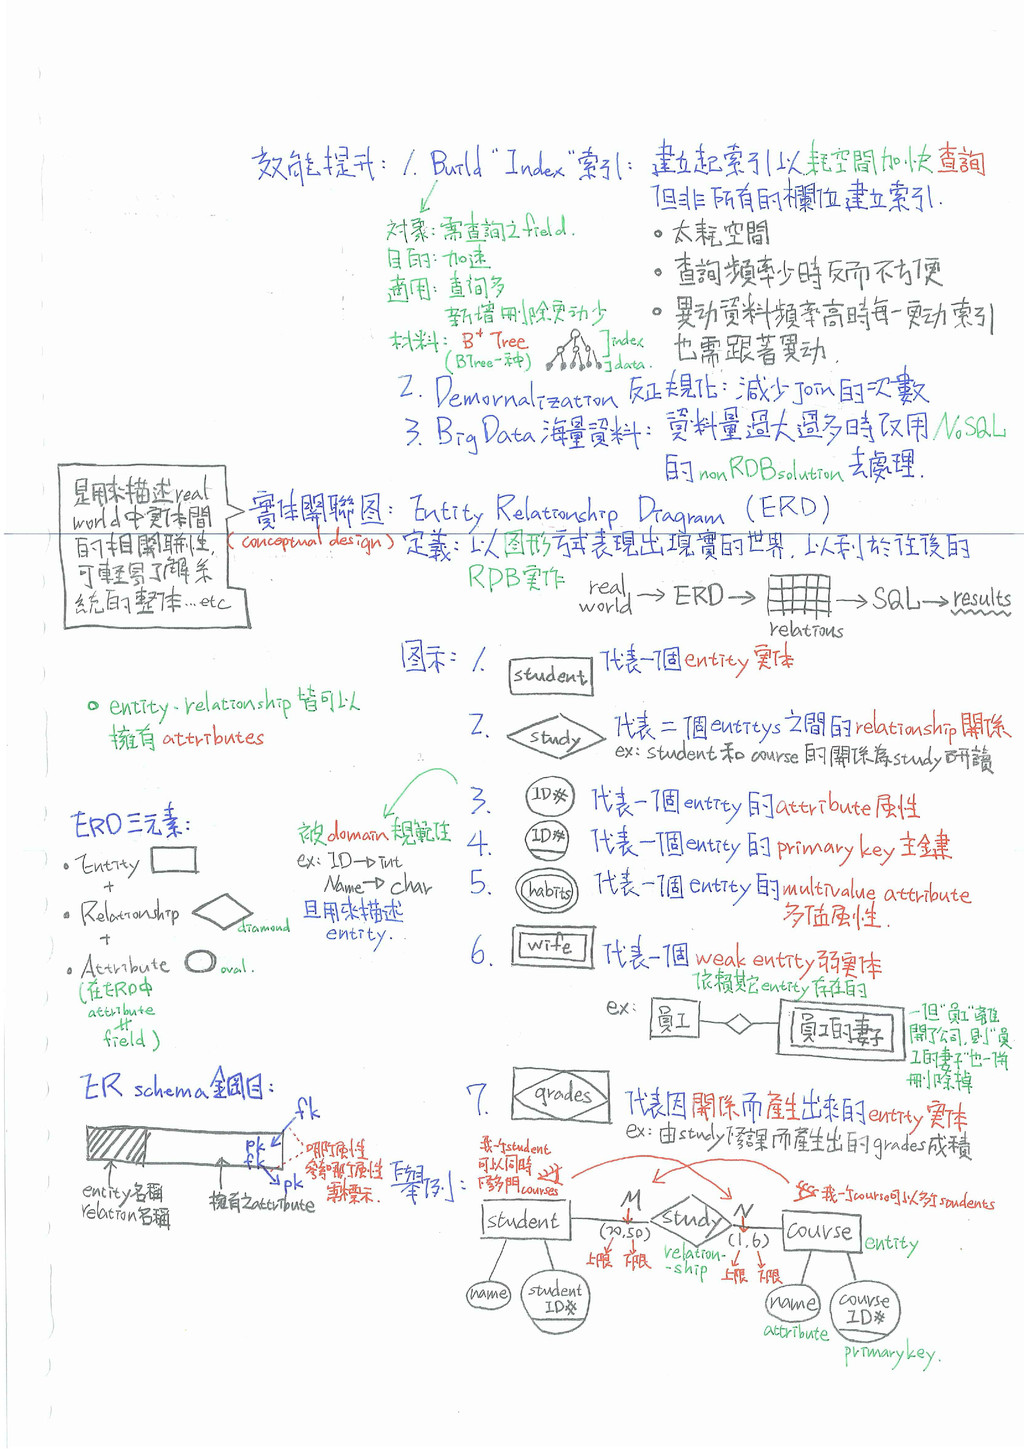 效能提升: 1. Build "Index" 索引: 建立起索引以耗空間加快查詢
但非所有的欄位建立索引.
对象: 需查詢之field.
目的: 加速
適用: 查询多
新增刪除更动少
材料: B+ Tree
(BTree一种)
index
data.
• 太耗空間
• 查詢頻率少時反而不方便
• 異动資料頻率高時每一更动索引
也需跟著異动.
2. Demornalization 反正規化: 減少join的次數
3. BigData海量資料: 資料量過大過多時改用NoSQL
的nonRDBsolution去處理.
是用來描述real
world中實体間
的相關聯性,
可輕易了解系
統的整体...etc
實体關聯图: Entity Relationship Diagram (ERD)
(conceptual design)
定義: 以图形方式表現出現實的世界, 以利於往後的
RDB實作
real
world → ERD → relations → SQL → results
图示: 1. student 代表一個entity實体
2. study 代表二個entitys之間的relationship關係
ex: student和course的關係為study研讀
3. ID# 代表一個entity的attribute属性
4. ID# 代表一個entity的primary key主鍵
5. habits 代表一個entity的multivalue attribute
多值属性.
6. wife 代表一個weak entity弱實体
依賴其它entity存在的
ex: 員工 員工的妻子
一但"員工"離
開了公司, 則"員
工的妻子"也一併
刪除掉
7. grades 代表因關係而產生出來的entity實体
ex: 由study修課而產生出的grades成績
• entity、relationship皆可以
擁有attributes
ERD三元素:
• Entity
+
• Relationship diamond
+
• Attribute oval.
(在ERD中
attribute
≠
field)
被domain規範性
ex: ID → int
Name → char
且用來描述
entity.
ER schema綱目:
fk
pk
fk
pk
哪个属性
參考哪个属性
需標示.
entity名稱
relation名稱
擁有之attribute
舉例:
我一个student
可以同時
修多門courses
我一个course可以多个students
student M study N course
(20,50)
上限 下限
(1,6)
上限 下限
relation-
-ship
entity
name
student
ID#
name
course
ID#
attribute
primarykey.